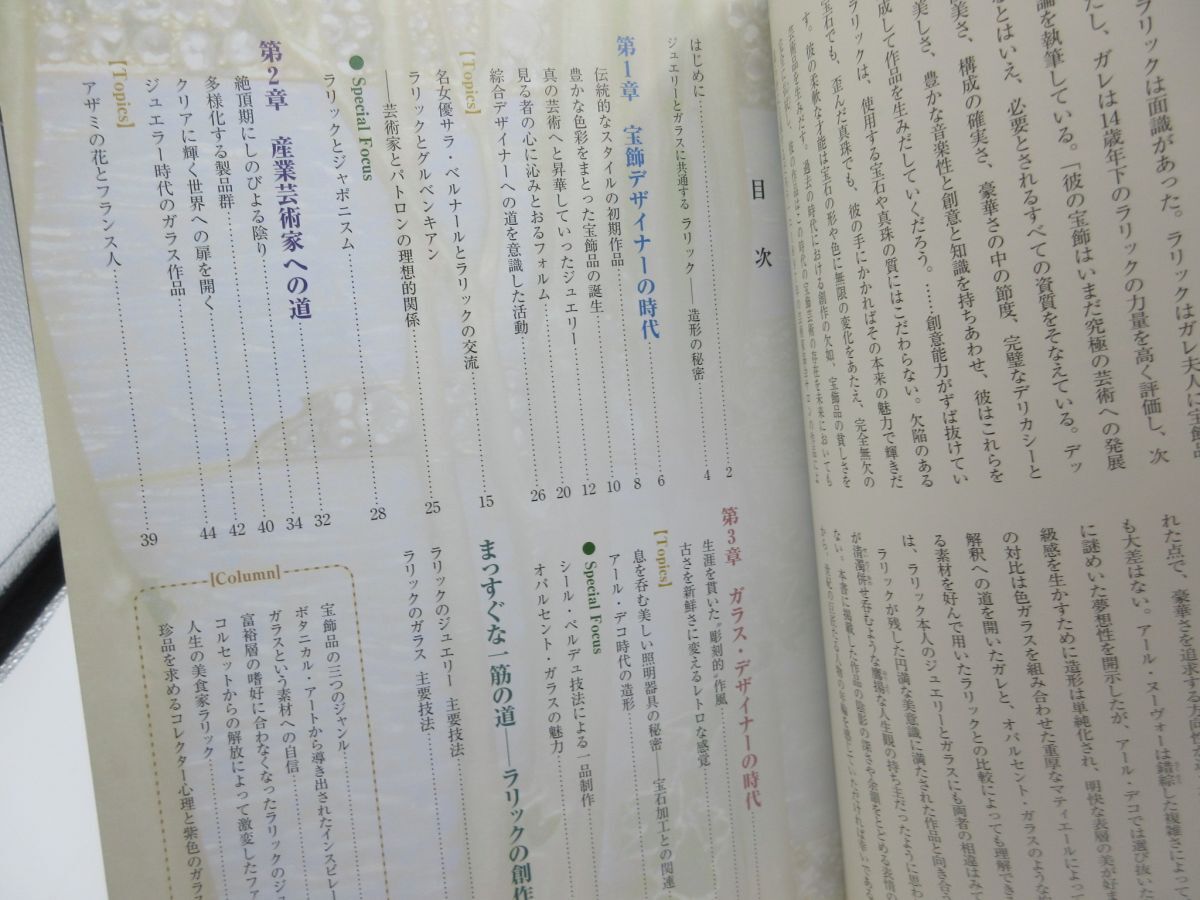 ラリックは面識があった。ラリックはガレ夫人に宝飾品
たし、ガレは14歳年下のラリックの力量を高く評価し、次
論を執筆している。「彼の宝飾はいまだ究極の芸術への発展
るとはいえ、必要とされるすべての資質をそなえている。デッ
美さ、構成の確実さ、豪華さの中の節度、完璧なデリカシーと
美しさ、豊かな音楽性と創意と知識を持ちあわせ、彼はこれらを
成して作品を生みだしていくだろう。……創意能力がずば抜けてい
ラリックは、使用する宝石や真珠の質にはこだわらない。欠陥のある
宝石でも、歪んだ真珠でも、彼の手にかかればその本来の魅力で輝きだ
す。彼の柔軟な才能は宝石の形や色に無限の変化をあたえ、完全無欠の
芸術品を生みだす。過去の時代における創作の欠如、宝飾品の貧しさを
れた点で、豪華さを追求する方向性
も大差はない。アール・ヌーヴォーは錯綜した複雑さによって
に謎めいた夢想性を開示したが、アール・デコでは選び抜いた
級感を生かすために造形は単純化され、明快な表層の美が好ま
の対比は色ガラスを組み合わせた重厚なマティエールによって
解釈への道を開いたガレと、オパルセント・ガラスのような
る素材を好んで用いたラリックとの比較によっても理解でき
は、ラリック本人のジュエリーとガラスにも両者の相違はみて
ラリックが残した円満な美意識に満たされた作品と向き合う
が清濁併せ呑むような鷹揚な人生観の持ち主だったように思わ
ない。本書に掲載した作品の陰影の深さや余韻をとどめる表情の
目次
はじめに 2
ジュエリーとガラスに共通する ラリック――造形の秘密 4
第1章 宝飾デザイナーの時代 6
伝統的なスタイルの初期作品 8
豊かな色彩をまとった宝飾品の誕生 10
真の芸術へと昇華していったジュエリー 12
見る者の心に沁みとおるフォルム 20
綜合デザイナーへの道を意識した活動 26
【Topics】
名女優サラ・ベルナールとラリックの交流 15
ラリックとグルベンキアン
――芸術家とパトロンの理想的関係 25
● Special Focus
ラリックとジャポニスム 28
第2章 産業芸術家への道 32
絶頂期にしのびよる陰り 34
多様化する製品群 40
クリアに輝く世界への扉を開く 42
ジュエラー時代のガラス作品 44
【Topics】
アザミの花とフランス人 39
第3章 ガラス・デザイナーの時代
生涯を貫いた“彫刻的”作風
古さを新鮮さに変えるレトロな感覚
【Topics】
息を呑む美しい照明器具の秘密――宝石加工との関連
アール・デコ時代の造形
● Special Focus
シール・ペルデュ技法による一品制作
オパルセント・ガラスの魅力
まっすぐな一筋の道――ラリックの創作
ラリックのジュエリー 主要技法
ラリックのガラス 主要技法
【Column】
宝飾品の三つのジャンル
ボタニカル・アートから導き出されたインスピレー
ガラスという素材への自信
富裕層の嗜好に合わなくなったラリックのジ
コルセットからの解放によって激変したファ
人生の美食家ラリック
珍品を求めるコレクター心理と紫色のガラス